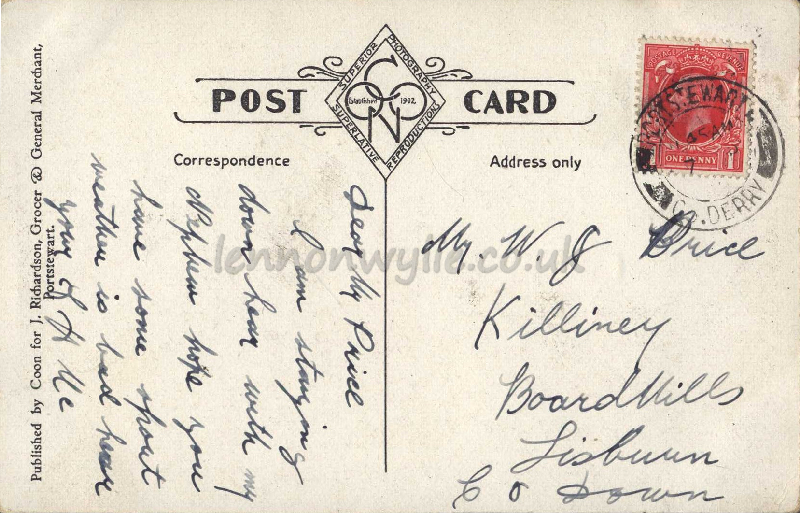 SUPERIOR PHOTOGRAPHY
SUPERLATIVE REPRODUCTIONS
Established 1912.
CON
POST CARD
Correspondence
Address only
POSTAGE REVENUE
ONE PENNY 1D
PORTSTEWART
CO. DERRY
Dear Mr Price
I am staying
down hear with my
Nephew hope you
have some sport
weather is bad hear
your
Mr. W. J Price
Killiney
BoardMills
Lisburn
Co Down
Published by Coon for J. Richardson, Grocer & General Merchant,
Portstewart.
lennonwylie.co.uk